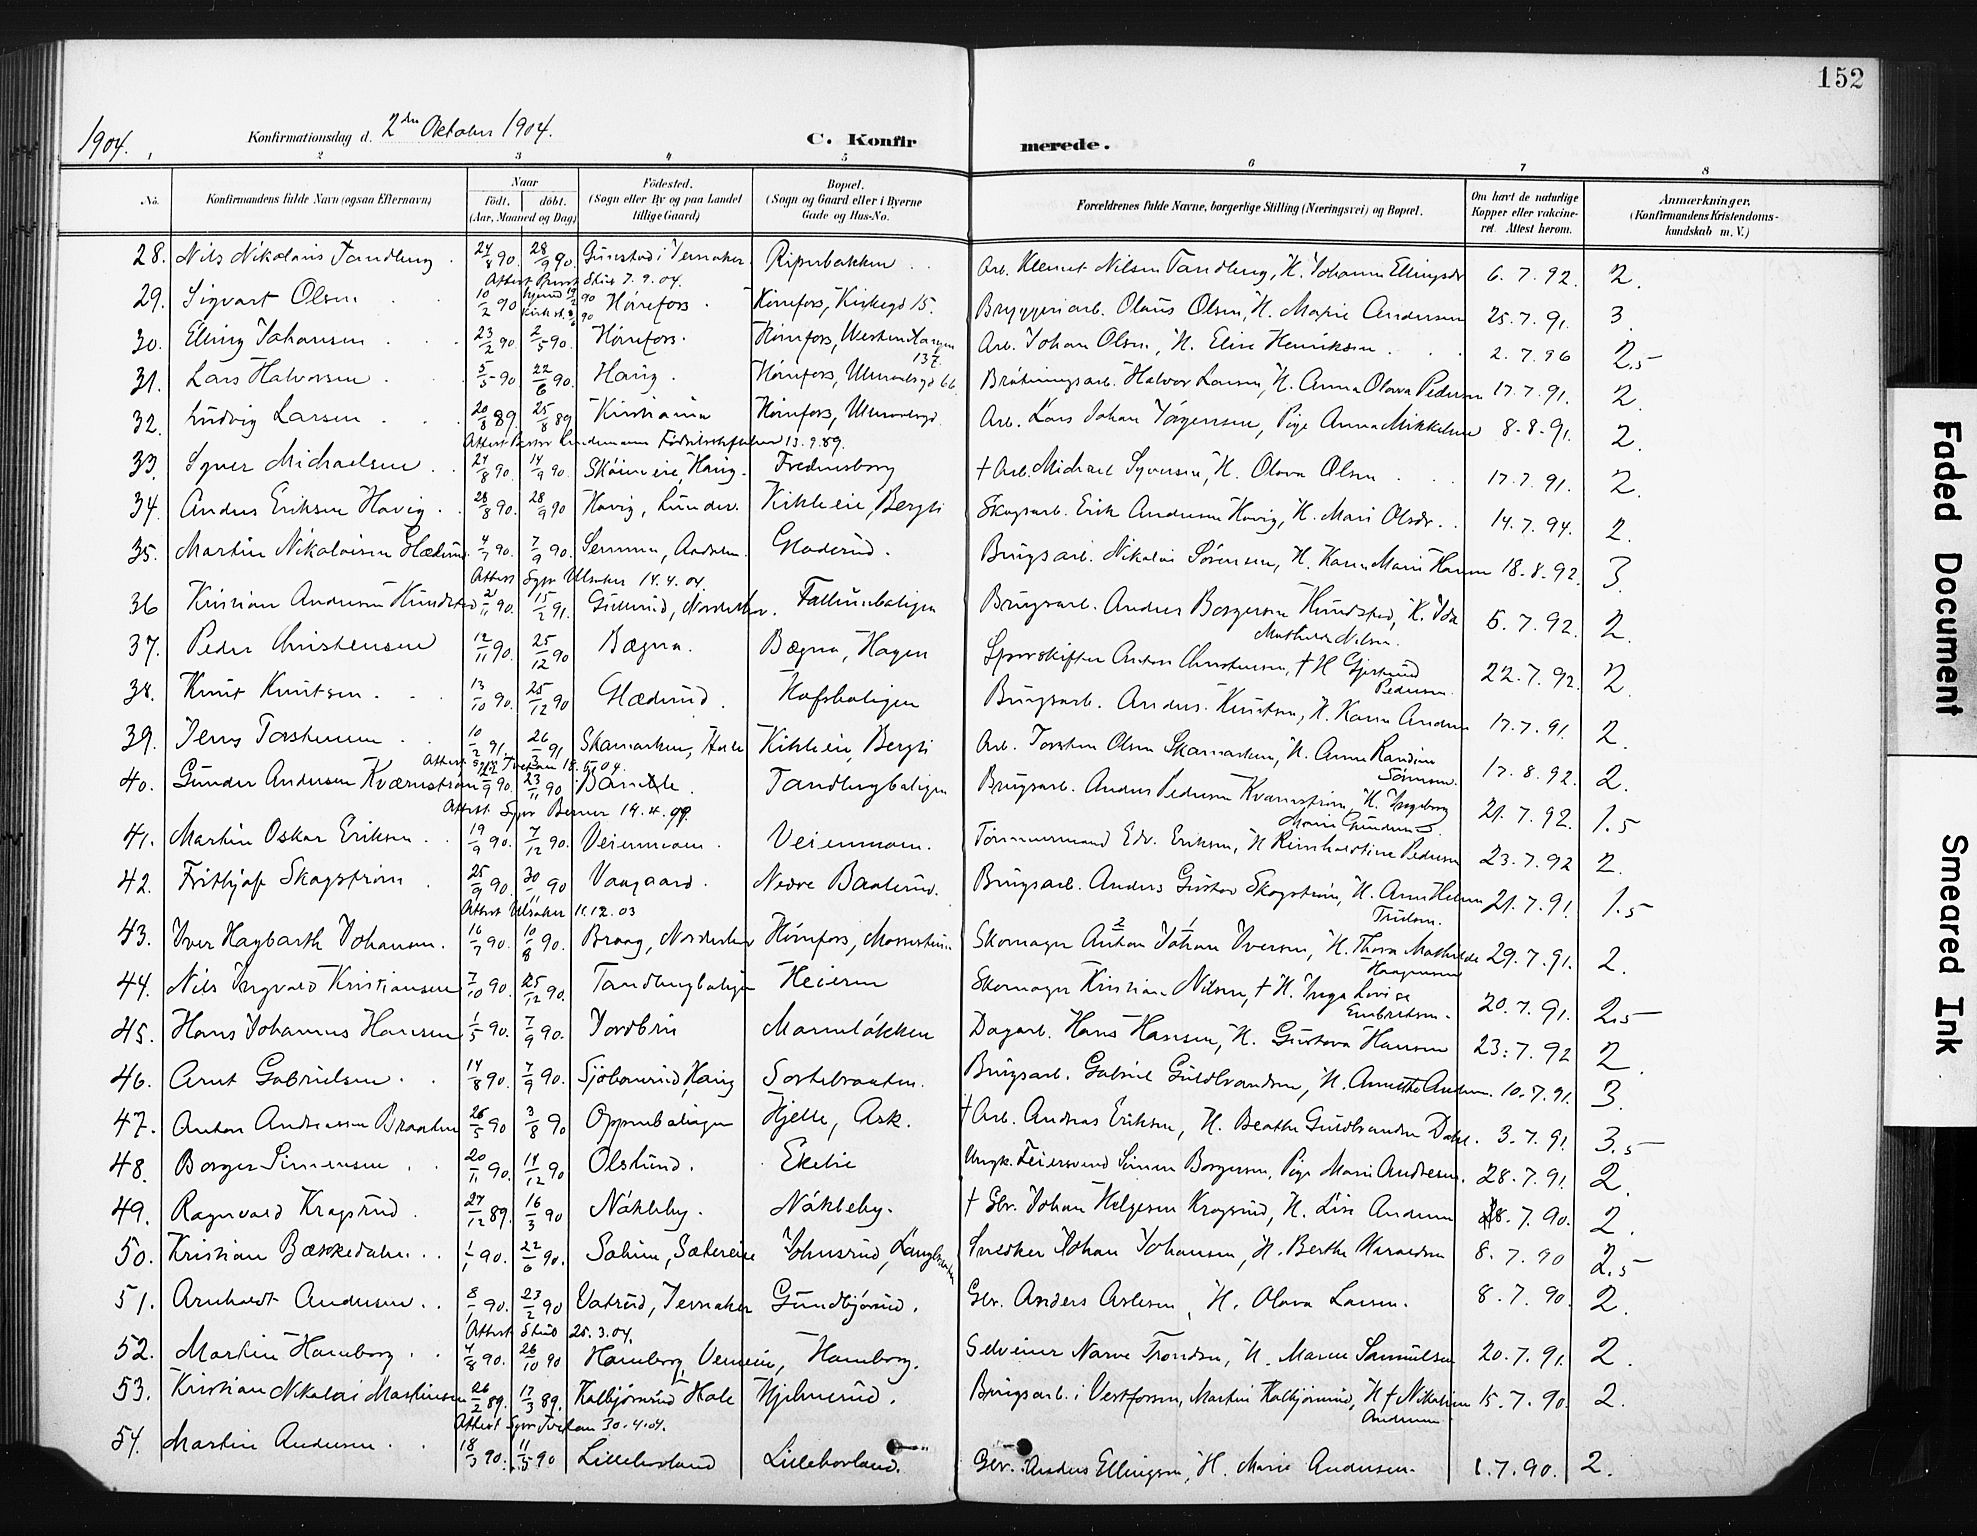 152
1904. Konfirmationsdag d. 2den Oktober 1904. C. Konfirmerede.
1 2 3 4 5 6 7 8
No. Konfirmandens fulde Navn (ogsaa Efternavn) Naar født. døbt. (Aar, Maaned og Dag) Fødested. (Sogn eller By og paa Landet tillige Gaard) Bopæl. (Sogn og Gaard eller i Byerne Gade og Hus-No. Forældrenes fulde Navne, borgerlige Stilling (Næringsvei) og Bopæl. Om havt de naturlige Kopper eller vakcineret. Attest herom. Anmærkninger. (Konfirmandens Kristendomskundskab m. V.)
28. Nils Nikolaus Tandberg 24/8 90 28/9 90 i Jevnaker Riperbakken Arb. Klemet Nilsen Tandberg, H. Johanne Ellingsdr 6.7.92. 2.
Attest 7.9.04.
29. Sigvart Olsen 10/2 90 Hønefos Hønefos, Kirkegd 15. Bryggeriarb. Olaus Olsen, H. Marie Andersen 25.7.91. 3.
30. Elling Johansen 23/2 90. 2/5 90. Hønefos. Hønefos, Arb. Johan Olsen, H. Elise Henriksen 2.7.96 2.5
31. Lars Halvorsen 5/5 90 22/6 90. Haug. Hønefos, Halvor Larsen, H. Anna Olava Pedersen 17.7.91. 2.
32. Ludvig Larsen 20/3 89. 25/8 89 Kristiania Hønefos, Arb. Lars Johan Jørgensen, Pige Anna Mikkelsen 8.8.91. 2.
Attest 13.9.89.
33. Syver Michaelsen 24/8 90. 14/9 90. Haug. Fredensborg † Arb. Michael Syversen, H. Olava Olsen 17.7.91. 2.
34. Anders Eriksen Hovig 28/8 90. 28/9 90 Hovig, Lunder. Kihleeie, Bergli Skogsarb. Erik Andersen Hovig, H. Mari Olsdr. 14.7.94. 2.
35. Martin Nikolaisen Glædrud 4/7 90. 7/9 90. Semmen, Glædrud. Brugsarb. Nikolai Sørensen, H. Karen Marie Hansen 18.8.92. 3.
Attest Spr. Ulsaker 14.4.04.
36 Kristian Andersen Hundstad 2/11 90. 15/2 91. Gullerud, Norderhov. Follumboligen Brugsarb. Anders Borgersen Hundstad, H. Ida Mathilde Nilsen. 5.7.92. 2.
37. Peder Christensen 12/11 90. 25/12 90 Bægna. Bægna, Hagen Sporskifter Anton Christensen, † H. Gjertrud Pedersen. 22.7.92. 2.
38. Knut Knutsen 13/10 90. 25/12 90 Glædrud. Hofsboligen Brugsarb. Anders Knutsen, H. Karen Andersen 17.7.91. 2.
39. Jens Torstensen 10/2 91. 26/3 91 Skamarken, Hole Kihleeie, Bergli Arb. Torsten Olsen Skamarken, H. Anne Randine Sørensen. 17.8.92. 2.
Attest Spr. Tvetan 18.5.04.
40. Gunder Andersen Kværnstrøm 9 90. 23/11 90 Bamble. Tandbergboligen Brugsarb. Anders Pedersen Kværnstrøm, H. Ingeborg Marie Gundersen. 21.7.92. 1.5
Attest Spr. Berner 14.4.99.
41. Martin Oskar Eriksen 19/9 90. 7/12 90. Veienmoen. Veienmoen. Tømmermand Edv. Eriksen, H. Reinholdtine Pedersen 23.7.92 2.
42. Frithjof Skogstrøm 25/9 90. 30/11 90 Vaagaard. Nedre Baalerud. Brugsarb. Anders Gustav Skogstrøm, H. Ann Helen 21.7.91. 1.5
Attest Ulsaker 11.12.03
43. Iver Hagbarth Johansen. 16/7 90. 10/8 90. Braag, Norderhov Hønefos, Skomager Anton Johan Iversen, H. Thora Mathilde Haagensen 29.7.91. 2.
44. Nils Ingvald Kristiansen 7/10 90. 25/12 90. Tandbergboligen Heieren Skomager Kristian Nilsen, † H. Inga Lovise Embretsen. 20.7.91. 2.5
45. Hans Johannes Hansen 1/5 90. 7/9 90. Jordbru Marmeløkken Dagarb. Hans Hansen, H. Gustava Hansen 23.7.92 2.
46. Arnt Gabrielsen. 14/8 90. 7/9 90. Haug Sortebraaten. Brugsarb. Gabriel Guldbrandsen, H. Annette Andersen. 10.7.91. 3.
47. Anton Andreassen Braaten 26/5 90 3/8 90 Oppenboligen Hjelle, Ask. † Arb. Andreas Eriksen, H. Beathe Guldbrandsen Dahl. 3.7.91. 3.5
48. Borger Simensen 20/11 90. 14/12 90 Olslund. Ekelie Ungk. Feiersvend Simen Borgersen, Pige Mari Andresen. 28.7.91. 2.
49. Ragnvald Kragsrud 27/12 89. 16/3 90 Nákleby. Nákleby. † Gbr. Johan Helgesen Kragsrud, H. Lise Andersen 28.7.90. 2.
50. Kristian Bækkedalen. 1/1 90. 22/6 90. Solum, Sætereie Johnsrud, Snedker Johan Johansen, H. Berthe Haraldsen 8.7.90 2.5
51. Arnholdt Andersen. 8/1 90. 23/2 90 Vatrud, Jevnaker Gundbjørrud. Gbr. Anders Arlesen, H. Olava Larsen. 8.7.90. 2.
Attest Skud 25.3.04.
52. Martin Hamborg. 4/8 90. 26/10 90 Hamborg Hamborg. Selveier Narve Trondsen, H. Maren Samuelsen 20.7.91. 2.
53. Kristian Nikolai Martinsen 26/2 89. 17/3 89. Kolbjørnrud Hole Hjelmerud. Brugsarb. i Vestfossen, Martin Kolbjørnrud, H † Nikoline Andersen. 15.7.90. 2.
Attest Spr. Tvetan 30.4.04.
54. Martin Andersen. 18/3 90. 11/5 90 Lillehovland Lillehovland. Gbr. Anders Ellingsen, H. Marie Andersen. 1.7.90. 2.
Faded Document
Smeared Ink